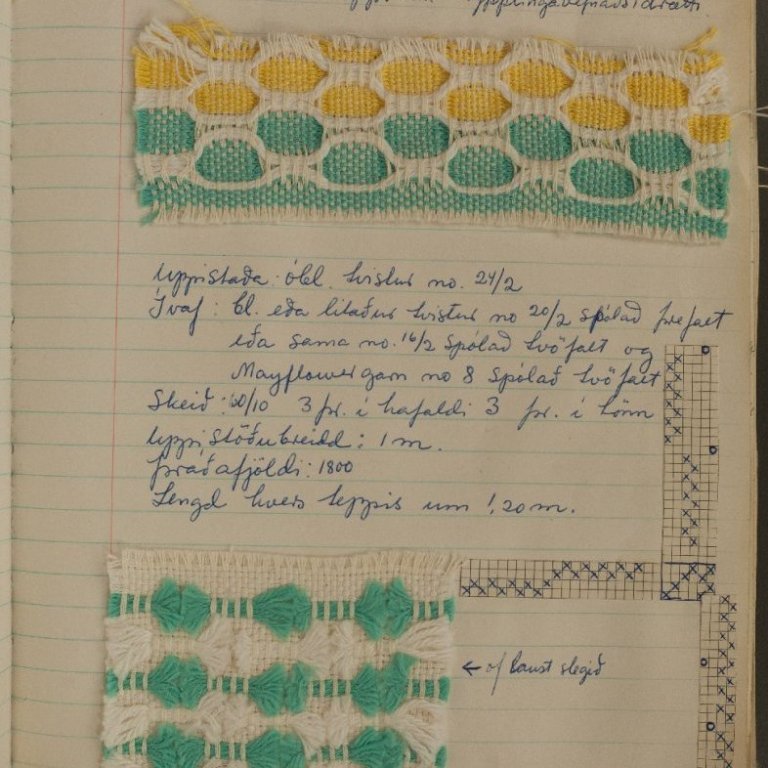 Uppistaða: óbl. tvistur no. 24/2
Ívaf: bl. eða litaður tvistur no 20/2 spólað þrefalt
eða sama no. 16/2 spólað tvöfalt og
Mayflowergarn no 8 spólað tvöfalt
Skeið: 60/10 3 þr. í hafaldi 3 þr. í tönn
Uppistöðubreidd: 1 m.
Þráðafjöldi: 1800
Lengd hvers teppis um 1,20 m.
← of laust slegið